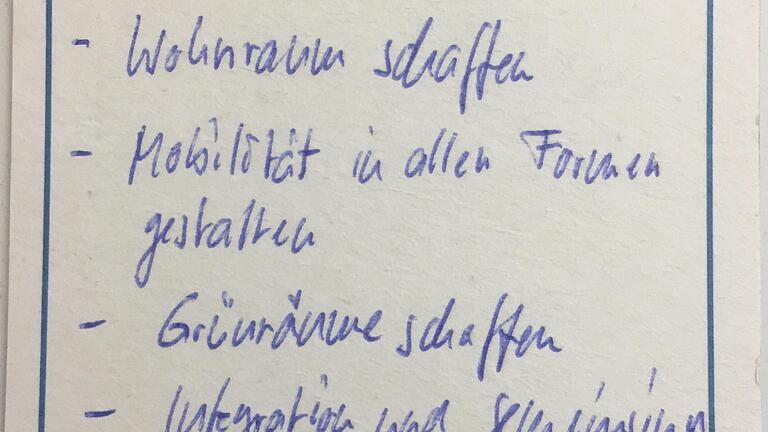 - Wohnraum schaffen
- Mobilität in allen Formen
gestalten
- Grünräume schaffen
- Integration und